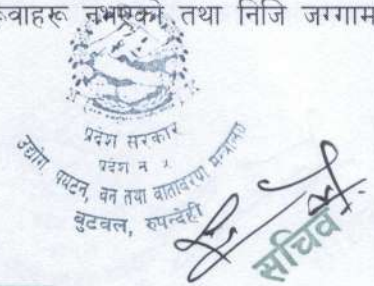 रुवाहरू नभएको तथा निजि जग्गाम
प्रदेश सरकार
प्रदेश नं ५
उद्योग, पर्यटन, वन तथा वातावरण मन्त्रालय
बुटवल, रुपन्देही
सचिव